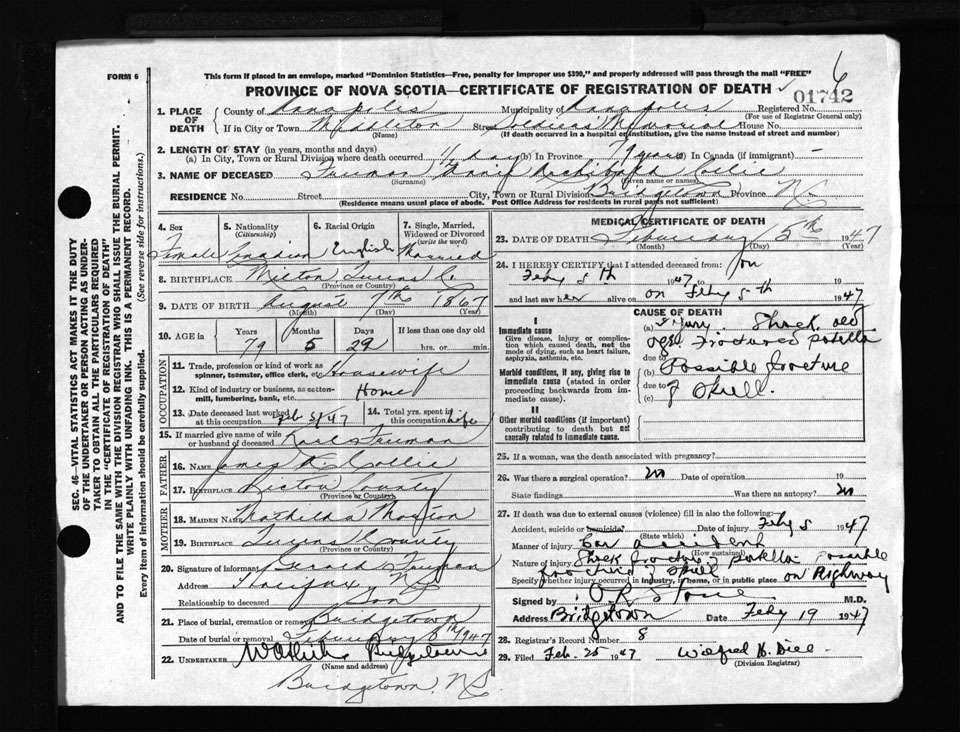 FORM 6
This form if placed in an envelope, marked "Dominion Statistics—Free, penalty for improper use $300," and properly addressed will pass through the mail "FREE"
6
PROVINCE OF NOVA SCOTIA—CERTIFICATE OF REGISTRATION OF DEATH
01742
1. PLACE OF DEATH
County of Annapolis Municipality of Annapolis Registered No.
(For use of Registrar General only)
If in City or Town Middleton Street Soldiers Memorial House No.
(Name) (If death occurred in a hospital or institution, give the name instead of street and number)
2. LENGTH OF STAY (in years, months and days)
(a) In City, Town or Rural Division where death occurred 1/2 day (b) In Province 79 years (c) In Canada (if immigrant) —
3. NAME OF DECEASED Freeman Annie Archibald Collie
(Surname) (Given name or names)
RESIDENCE No. Street City, Town or Rural Division Bridgetown Province N.S.
(Residence means usual place of abode. Post Office Address for residents in rural parts not sufficient)
4. Sex Female
5. Nationality (Citizenship) Canadian
6. Racial Origin English
7. Single, Married, Widowed or Divorced (write the word) Married
8. BIRTHPLACE Milton Queens Co.
(Province or Country)
9. DATE OF BIRTH August 7th 1867
(Month) (Day) (Year)
10. AGE in Years Months Days If less than one day old
79 5 29 hrs. or min.
OCCUPATION
11. Trade, profession or kind of work as spinner, teamster, office clerk, etc. Housewife
12. Kind of industry or business, as cotton-mill, lumbering, bank, etc. Home
13. Date deceased last worked at this occupation Feb 5/47
14. Total yrs. spent in this occupation life
15. If married give name of wife or husband of deceased Freeman
FATHER
16. NAME James Collie
17. BIRTHPLACE County
(Province or Country)
MOTHER
18. MAIDEN NAME
19. BIRTHPLACE Queens County
(Province or Country)
20. Signature of informant Gerald Freeman
Address Halifax N.S.
Relationship to deceased Son
21. Place of burial, cremation or removal Bridgetown
Date of burial or removal February 8th 1947
22. UNDERTAKER
(Name and address)
Bridgetown, N.S.
MEDICAL CERTIFICATE OF DEATH
23. DATE OF DEATH February 5th 1947
(Month) (Day) (Year)
24. I HEREBY CERTIFY that I attended deceased from on
Feby 5th 1947 to 19
and last saw her alive on Feby 5th 1947
CAUSE OF DEATH
I
Immediate cause
Give disease, injury or complication which caused death, not the mode of dying, such as heart failure, asphyxia, asthenia, etc.
Morbid conditions, if any, giving rise to immediate cause (stated in order proceeding backwards from immediate cause).
II
Other morbid conditions (if important) contributing to death but not causally related to immediate cause.
(a) Injury. Shock old age. Fractured patella
due to
(b) Possible fracture
due to of Skull.
(c)
25. If a woman, was the death associated with pregnancy?
26. Was there a surgical operation? no Date of operation 19
State findings Was there an autopsy? no
27. If death was due to external causes (violence) fill in also the following:
Accident, suicide or homicide? Date of injury Feby 5 1947
(State which)
Manner of injury Car accident
(How sustained)
Nature of injury Shock fractured patella possible fractured skull
Specify whether injury occurred in industry, in home, or in public place on Highway
Signed by M.D.
Address Bridgetown Date Feby 19 1947
28. Registrar's Record Number 8
29. Filed Feb. 25 1947 Wilfred
(Division Registrar)
SEC. 46—VITAL STATISTICS ACT MAKES IT THE DUTY
OF THE UNDERTAKER OR PERSON ACTING AS UNDERTAKER TO OBTAIN ALL THE PARTICULARS REQUIRED
IN THE "CERTIFICATE OF REGISTRATION OF DEATH"
AND TO FILE THE SAME WITH THE DIVISION REGISTRAR WHO SHALL ISSUE THE BURIAL PERMIT.
WRITE PLAINLY WITH UNFADING INK. THIS IS A PERMANENT RECORD.
Every item of information should be carefully supplied. (See reverse side for instructions.)